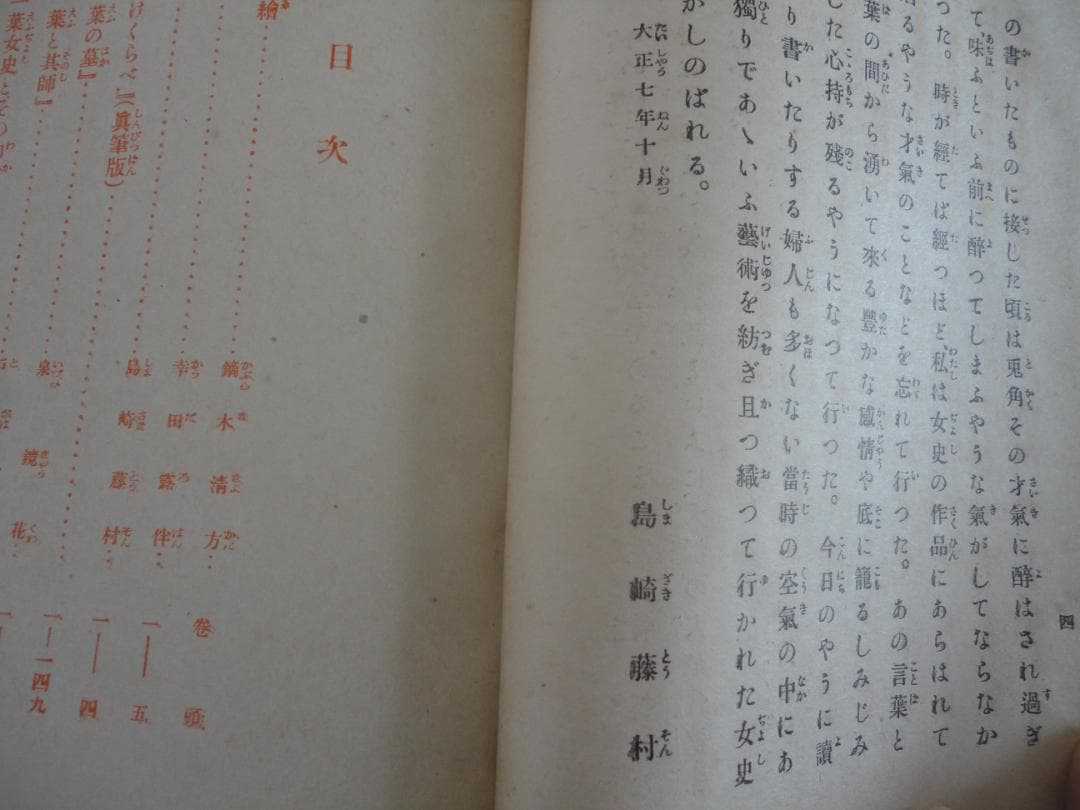 四
の書いたものに接した頃は兎角その才氣に醉はされ過ぎ
て、味ふといふ前に醉つてしまふやうな氣がしてならなか
つた。時が經てば經つほど、私は女史の作品にあらはれて
るやうな才氣のことなどを忘れて行つた。あの言葉と
葉の間から湧いて來る豐かな感情や底に籠るしみじみ
した心持が殘るやうになつて行つた。今日のやうに讀
り書いたりする婦人も多くない當時の空氣の中にあ
獨りであゝいふ藝術を紡ぎ且つ織つて行かれた女史
がしのばれる。
大正七年十月
島崎藤村
目次
繪 鏑木淸方 卷頭
けくらべ』(眞筆版) 幸田露伴 一―五
葉の墓』 島崎藤村 一―四
葉と其師』 泉鏡花 一―一四九
葉女史